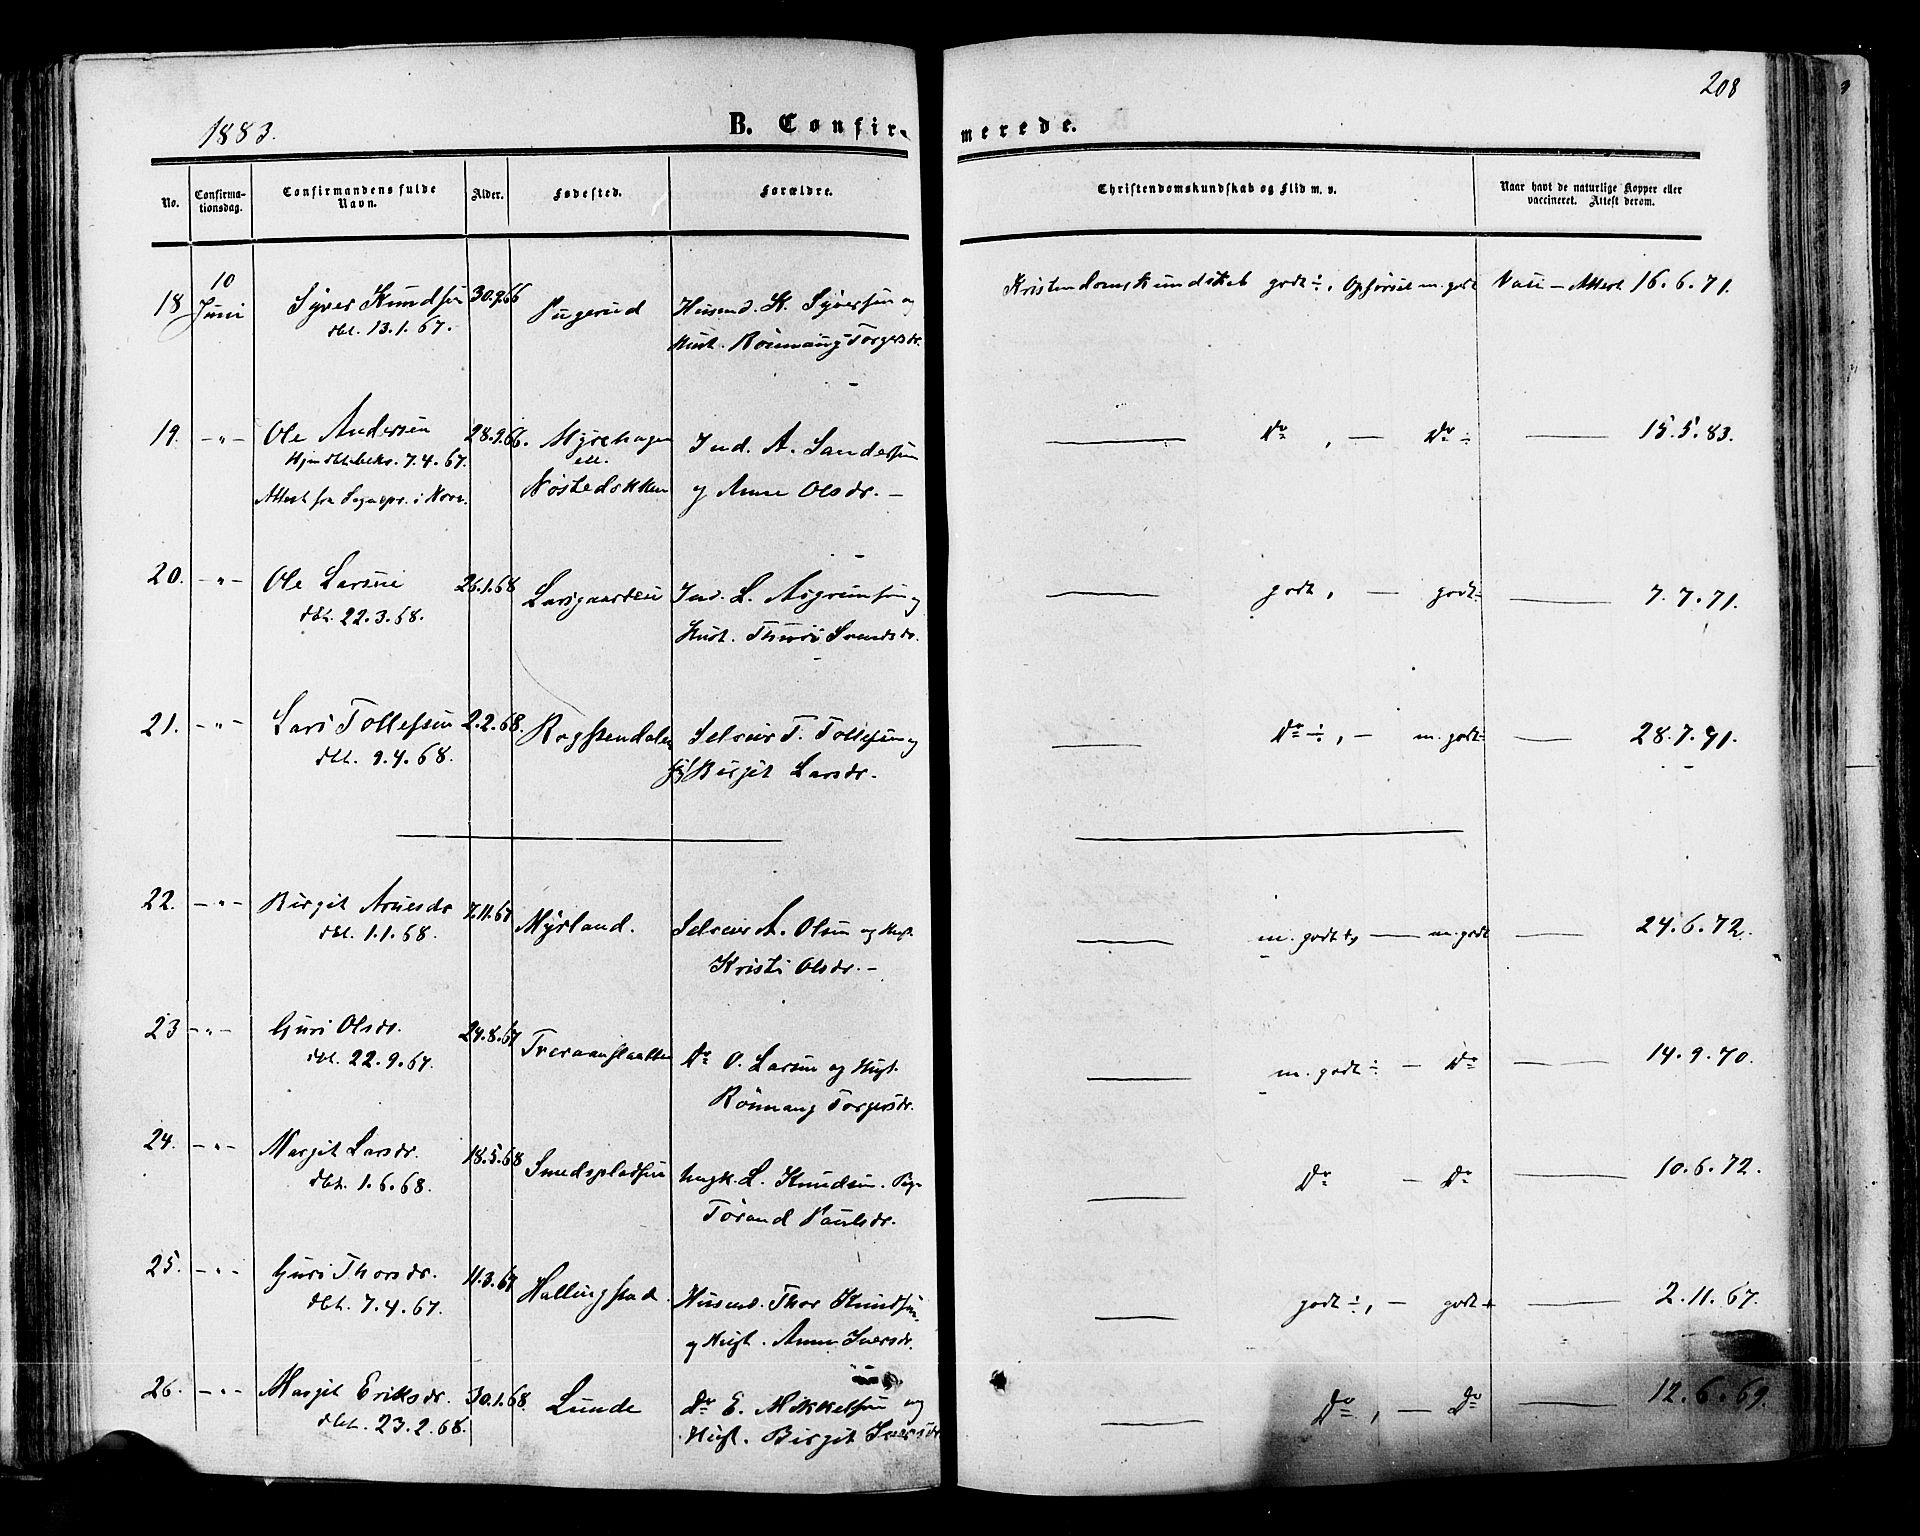 208
1883.
B. Confirmerede.
No.
Confirmationsdag.
Confirmandens fulde Navn.
Alder.
Fødested.
Forældre.
Christendomskundskab og Flid m. v.
Naar havt de naturlige Kopper eller vaccineret. Attest derom.
18 10 Juni Syver Knudsen 30.9.66 Pugerud Husmd. K. Syversen og Kristendomskundskab godt ÷, Opførsel m. godt Vacc – Attest 16.6.71.
dbt. 13.1.67. Hust. Rönnaug Torgersdr.
19. – " – Ole Andersen 28.9.66. Myrehagen Ind. A. Sandersen Do , — Do ÷ 15.5.83.
Hjemdbt. beks. 7.4.67. ell.
Attest fra Sognepr. i Nore. Nöstedokken og Anne Olsdr. –
20. – " – Ole Larsen 26.1.68 Larsgaarden Ind. L. Asgrimsen og godt, — godt ÷ 7.7.71.
dbt. 22.3.68. Hust. Thuri Svendsdr.
21. – " – Lars Tollefsen 2.2.68. Selveier T. Tollefsen og Do ÷, — m. godt ÷ 28.7.71.
dbt. 9.4.68. Birgit Larsdr.
22. – " – Birgit Arnesdr 7.11.67 Myrland. Selveier A. Olsen og Hust. m. godt +, — m. godt 24.6.72.
dbt. 1.1.68. Kristi Olsdr. –
23 – " – Guri Olsdr. 24.8.67 Do O. Larsen og Hust. m. godt ÷ — Do 14.9.70.
dbt. 22.9.67. Rönnaug Torgersdr.
24. – " – Margit Larsdr. 18.5.68 Smedspladsen Ungk. L. Knudsen. Pige Do — Do 10.6.72.
dbt. 1.6.68. Törand Paulsdr.
25. – " – Guri Thorsdr. 11.3.67 Hallingstad. Husmd. Thor Knudsen godt ÷, — godt + 2.11.67.
dbt. 7.4.67. og Hust. Anne Iversdr.
26. – " – Margit Eriksdr. 30.1.68. Lunde Do E. Mikkelsen og Do , — Do 12.6.69.
dbt. 23.2.68. Hust. Birgit Iversdr